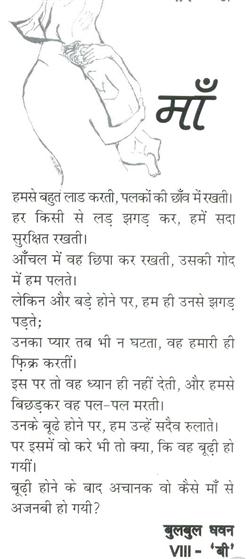 माँ
हमसे बहुत लाड करती, पलकों की छाँव में रखती।
हर किसी से लड़ झगड़ कर, हमें सदा
सुरक्षित रखती।
आँचल में वह छिपा कर रखती, उसकी गोद
में हम पलते।
लेकिन और बड़े होने पर, हम ही उनसे झगड़
पड़ते;
उनका प्यार तब भी न घटता, वह हमारी ही
फ़िक्र करतीं।
इस पर तो वह ध्यान ही नहीं देती, और हमसे
बिछड़कर वह पल-पल मरती।
उनके बूढे होने पर, हम उन्हें सदैव रुलाते।
पर इसमें वो करे भी तो क्या, कि वह बूढ़ी हो
गयीं।
बूढ़ी होने के बाद अचानक वो कैसे माँ से
अजनबी हो गयी?
बुलबुल धवन
VIII - 'बी'